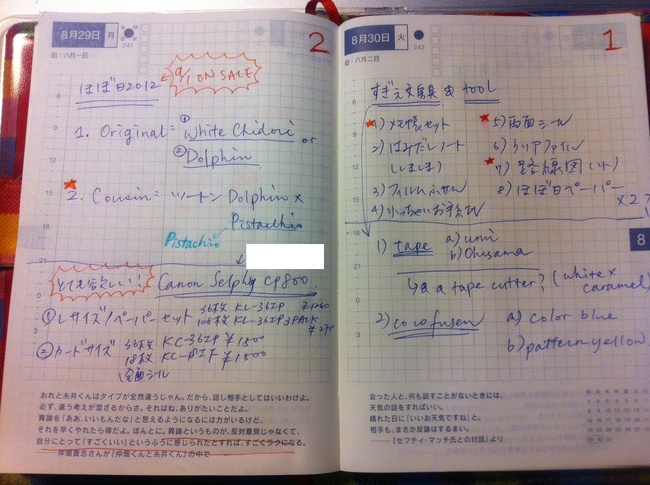 8月29日 月
241
旧:八月一日
2
ほぼ日2012
9/1 ON SALE
1. Original = ① White Chidori or
② Dolphin
2. Cousin = ツートン Dolphin ×
Pistachio
Pistachio
とても欲しい!! Canon Selphy CP800.
① Lサイズ/ペーパーセット 36枚 KL-36IP ¥1260
108枚 KL-36IP 3PACK
② カードサイズ 36枚 KC-36IP ¥1500
18枚 ¥1500
全面シール
おれと糸井くんはタイプが全然違うじゃん。だから、話し相手としてはいいわけよ。
必ず、違う考えが混ざるからさ。それはね、ありがたいことだよ。
異論を「ああ、いいもんだな」と思えるようになるには力がいるけど、
それを早くやれたら得だよ。ほんとに。異論というものが、反対意見じゃなくて、
自分にとって「すごくいい」というふうに感じられたとすれば、すごくラクになる。
仲畑貴志さんが『仲畑くんと糸井くん』の中で
8月30日 火
242
旧:八月二日
1
文房具 & tool
1) メモ帳セット
2) はみだしノート
(しましま)
3) フィルムふせん
4) ちっちゃいお手紙
5) 両面シール
6) クリアファイル
7) 路線図(小)
8) ほぼ日ペーパー
×2
1) tape a) umi
b) Ohisama
↳ a a tape cutter? (white × caramel)
2) cocofusen a) color blue
b) pattern yellow
8
会った人と、何も話すことがないときには、
天気の話をすればいい。
晴れた日に「いいお天気ですね」と。
相手も、まさか反論はするまい。
『セフティ・マッチ氏との対話』より